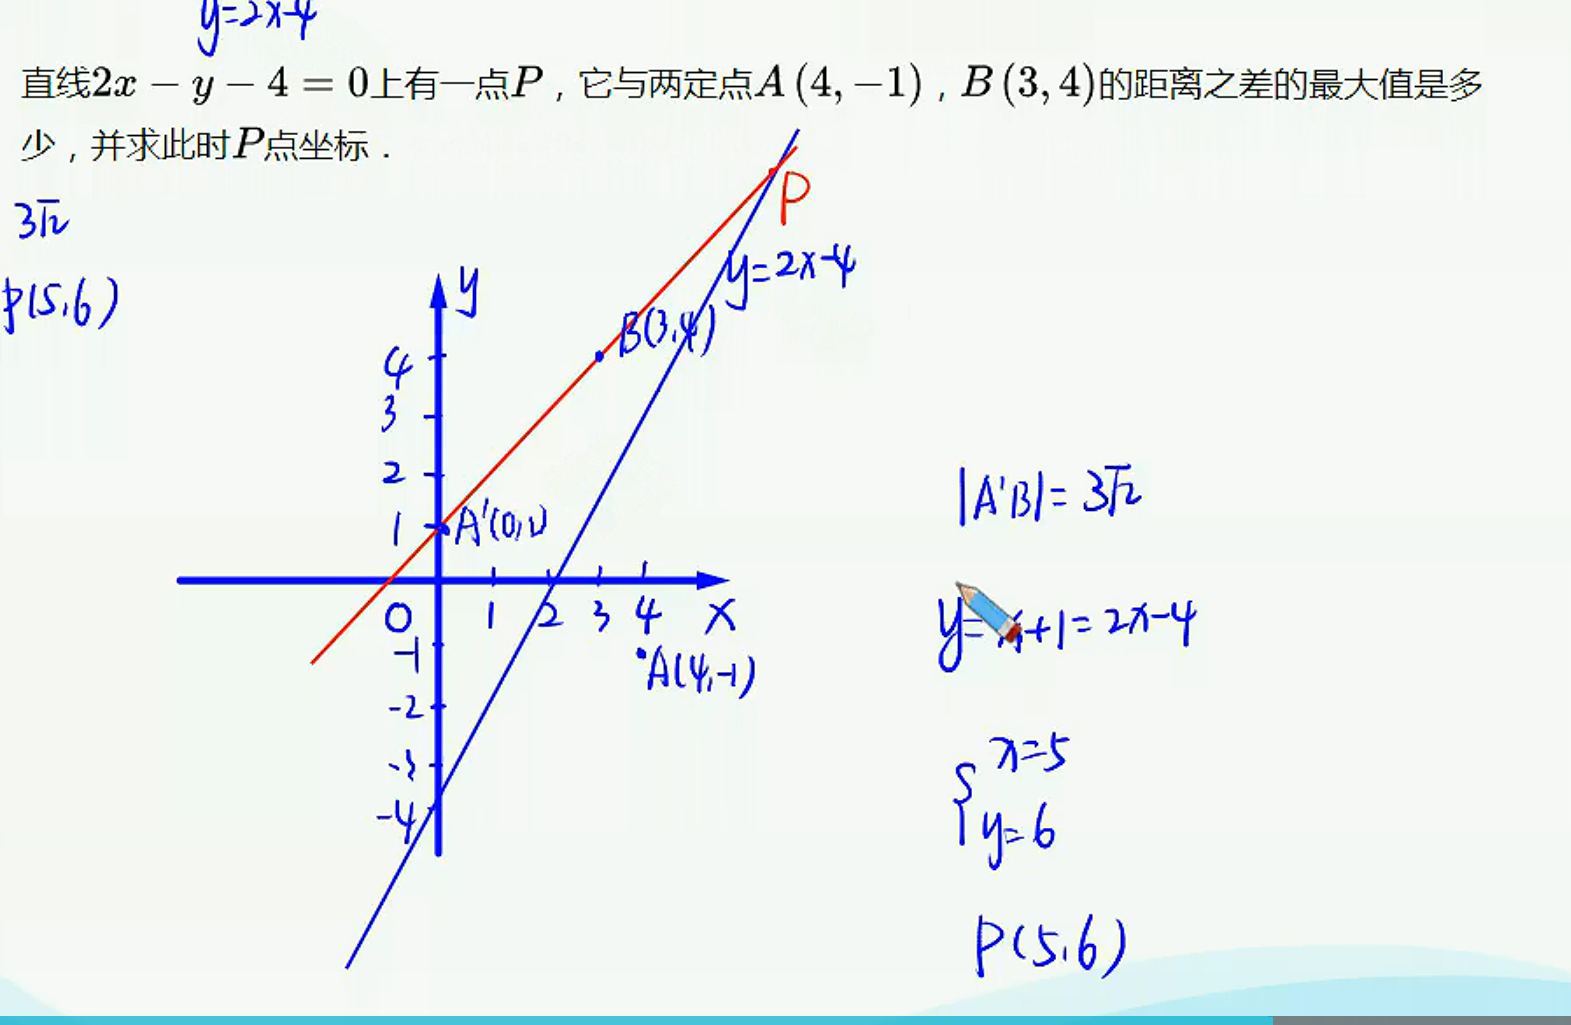 y=2x-4
直线2x − y − 4 = 0上有一点P，它与两定点A (4, −1)，B (3, 4)的距离之差的最大值是多
少，并求此时P点坐标．
3√2
P(5,6)
P
y=2x-4
y
B(3,4)
4
3
2
1
A'(0,1)
0
1
2
3
4
x
-1
A(4,-1)
-2
-3
-4
|A'B|= 3√2
y= x+1=2x-4
{ x=5
y=6
P(5,6)